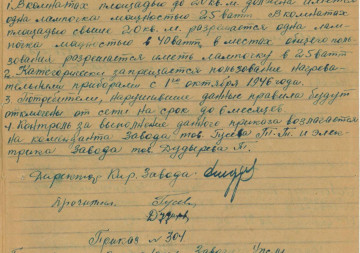 1. В комнатах площадью до 20 кв. м. должна иметься
одна лампочка мощностью 25 ватт. В комнатах
площадью свыше 20 кв. м. разрешается одна лам-
почка мощностью в 40 ватт, в местах общего поль-
зования разрешается иметь лампочку в 25 ватт.
2. Категорически запрещается пользование нагрева-
тельными приборами с 1го октября 1946 года.
3. Потребители, нарушившие данные правила будут
отключены от сети на срок до 6 месяцев.
4. Контроль за выполнение данного приказа возлагается
на коменданта Завода тов. Гусева П. П. и элек-
трика Завода тов. Дудырева П.
Директор Кир. Завода
Прочитал: Гусев,
Приказ № 304